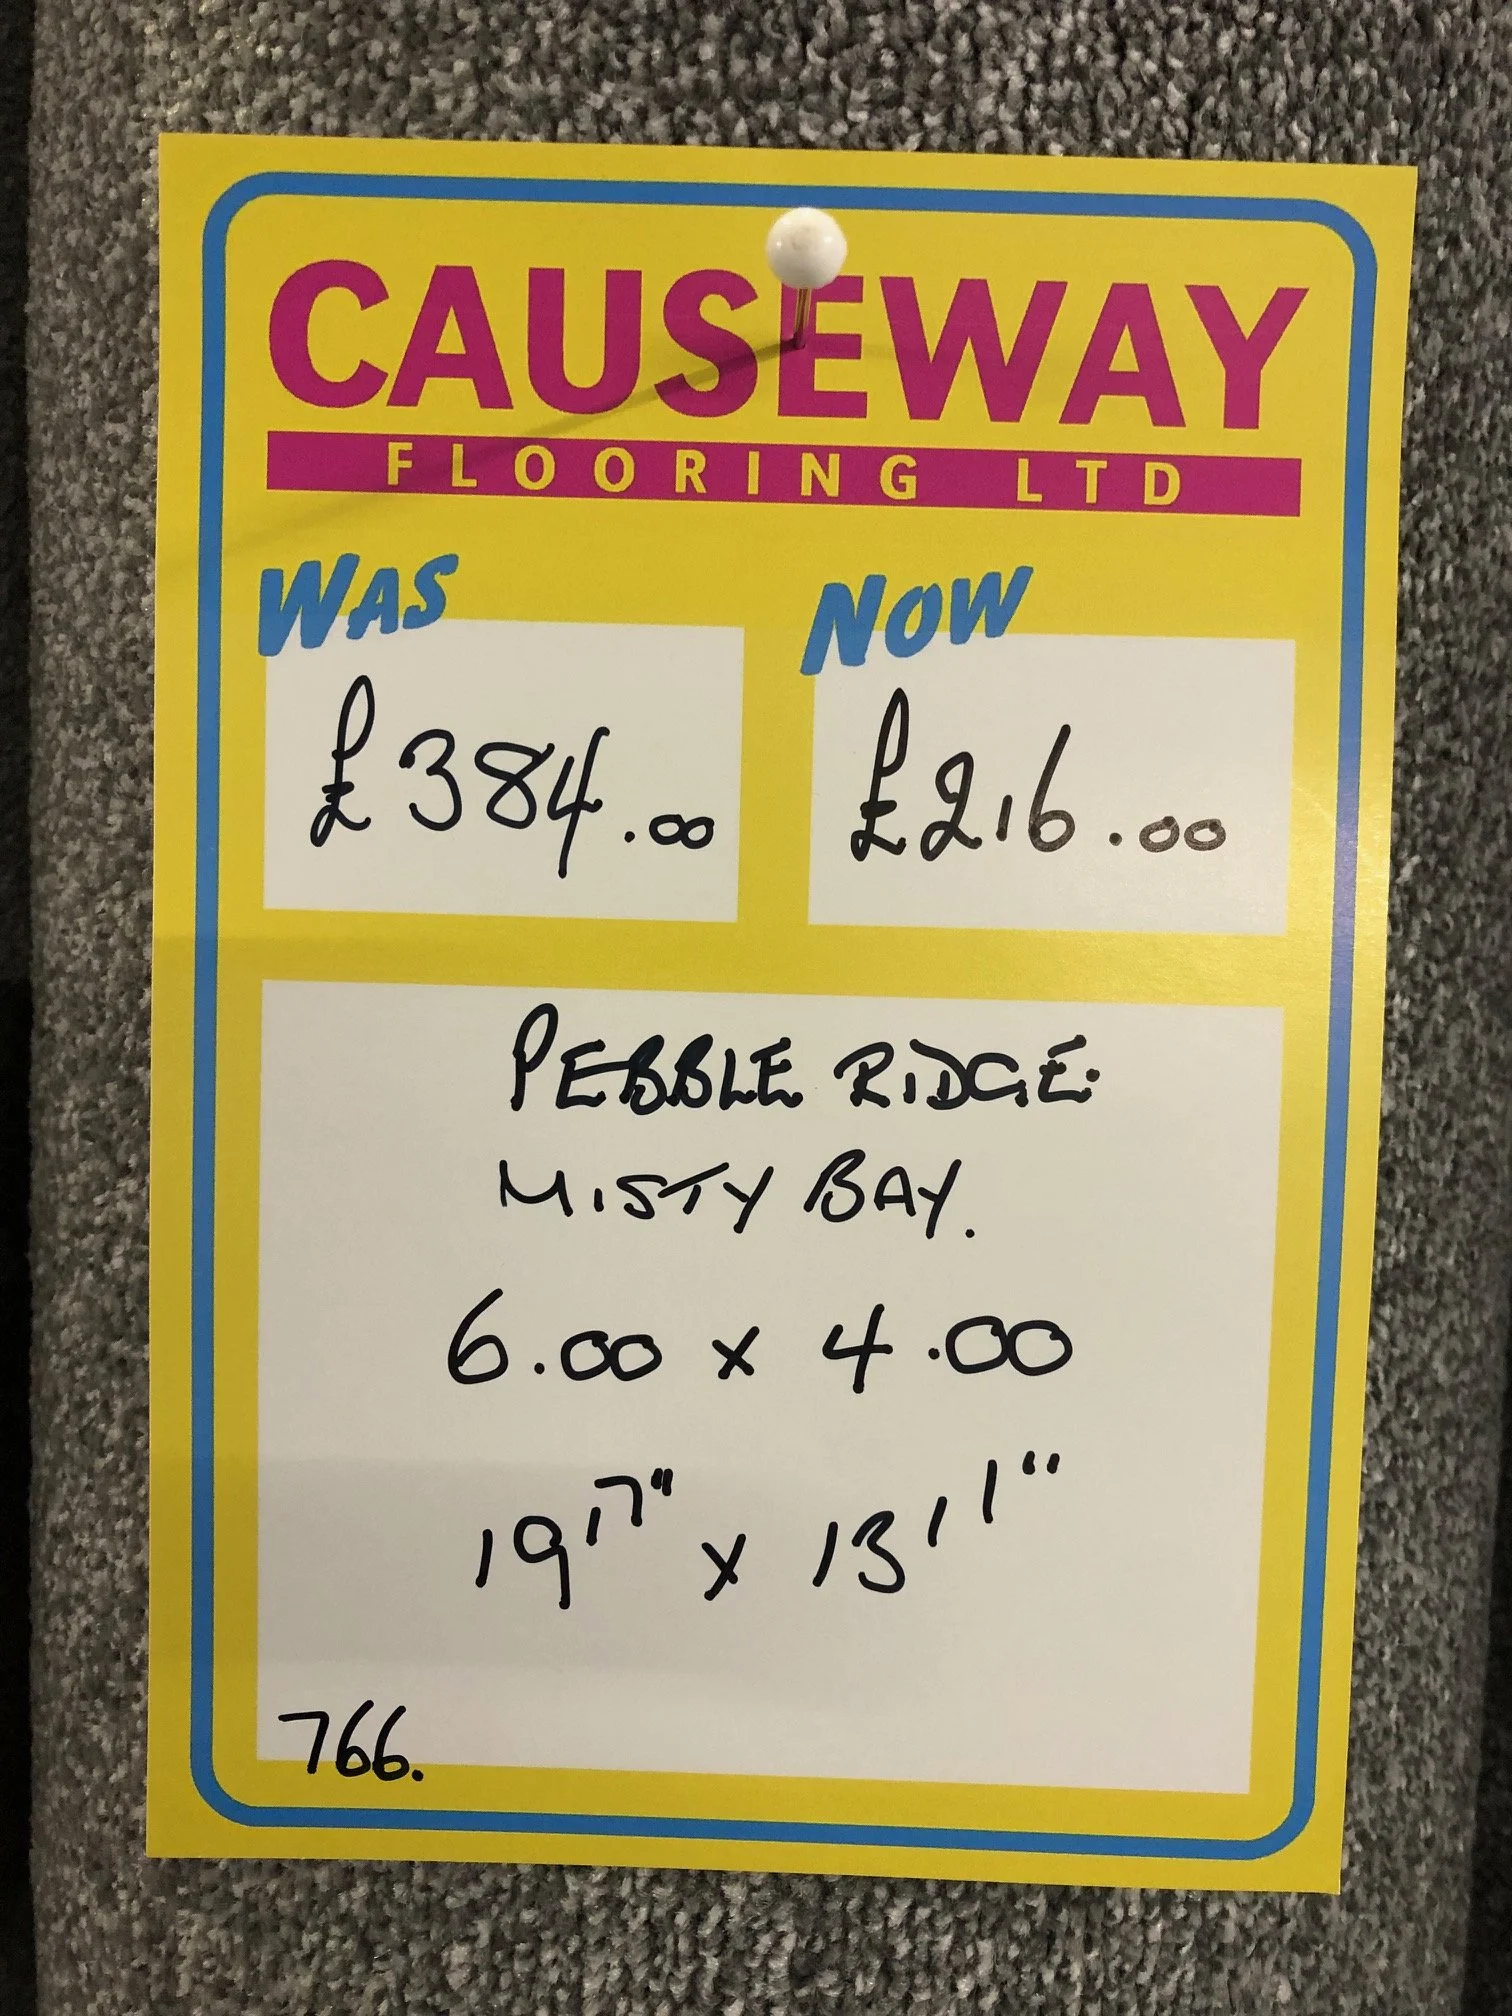 CAUSEWAY
FLOORING LTD
WAS NOW
£384.00 £216.00
PEBBLE RIDGE.
MISTY BAY.
6.00 x 4.00
19'7" x 13'1"
766.